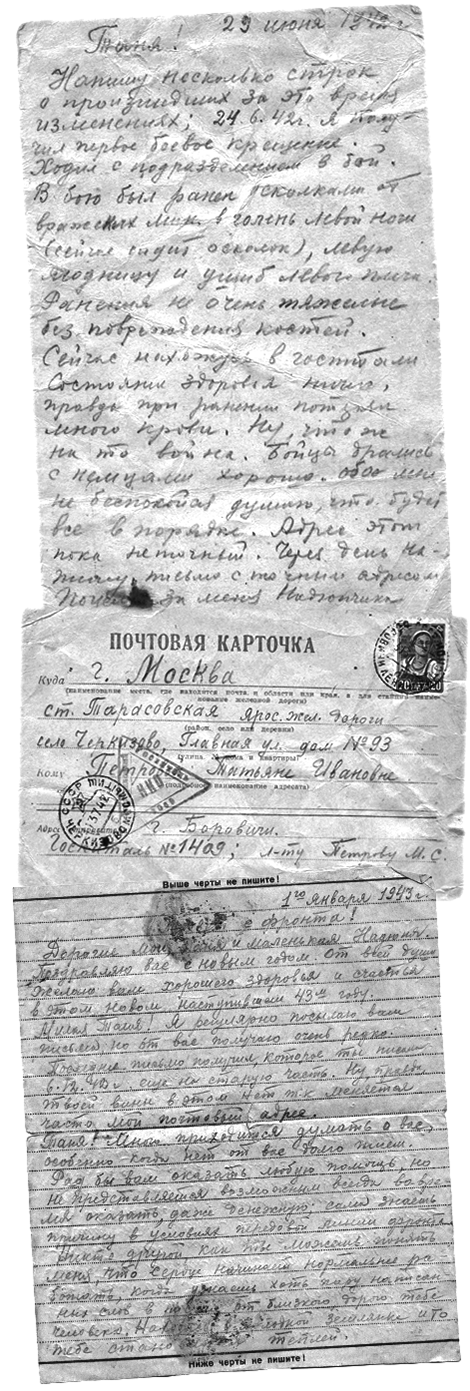 29 июня 1942 г
Таня!
Напишу несколько строк
о произшедших за это время
изменениях; 24.6.42г. я полу-
чил первое боевое крещение.
Ходил с подразделением в бой.
В бою был ранен осколками от
вражеских мин в голень левой ноги
(сейчас сидит осколок), левую
ягодницу и ушиб левого плеча.
Ранения не очень тяжелые
без повреждения костей.
Сейчас нахожусь в госпитали
Состояние здоровья ничего,
правда при ранении потерял
много крови. Ну, что ж
на то война. Бойцы дрались
с немцами хорошо. обо мне
не беспокойся думаю, что будет
все в порядке. Адрес этот
пока неточный. Через день на-
пишу письмо с точным адресом
Поцелуй за меня Надюнчика
ПОЧТОВАЯ КАРТОЧКА
Куда г. Москва
(наименование места, где находится почта, и области или края, а для станций наиме-
нование железной дороги)
ст. Тарасовская Яросл. жел. дороги
(район, село или деревня)
село Черкизово, Главная ул. дом № 93
(улица, № дома и квартиры)
Кому Петровой Татьяне Ивановне
(подробное наименование адресата)
Адрес отправителя г. Боровичи.
Госпиталь № 1409; л-ту Петрову М. С.
Выше черты не пишите!
1го января 1943 г
с фронта!
Дорогие мои Таня и маленькая Надюнчик.
Поздравляю вас с новым годом. От всей души
желаю вам хорошего здоровья и счастья
в этом новом наступившем 43-м году.
Милая Таня! Я регулярно посылаю вам
письма но от вас получаю очень редко.
Последнее письмо получил, которое ты писала
6.12.42г еще на старую часть. Ну, правда
твоей вины в этом нет т.к. меняется
часто мой почтовый адрес.
Таня! Мне приходится думать о вас,
особенно когда нет от вас долго писем.
Рад бы вам оказать любую помощь, но
не представляется возможным всегда во вре-
мя оказать, даже денежную, сама знаешь
причину в условиях передовой линии фронта.
Пиши почаще как ты можешь понять
меня, что сердце начинает нормально ра-
ботать, когда узнаешь хоть пару написан-
ных слов в от близкого, дорого тебе
человека. холодной землянке и то
тебе теплей.
Ниже черты не пишите!